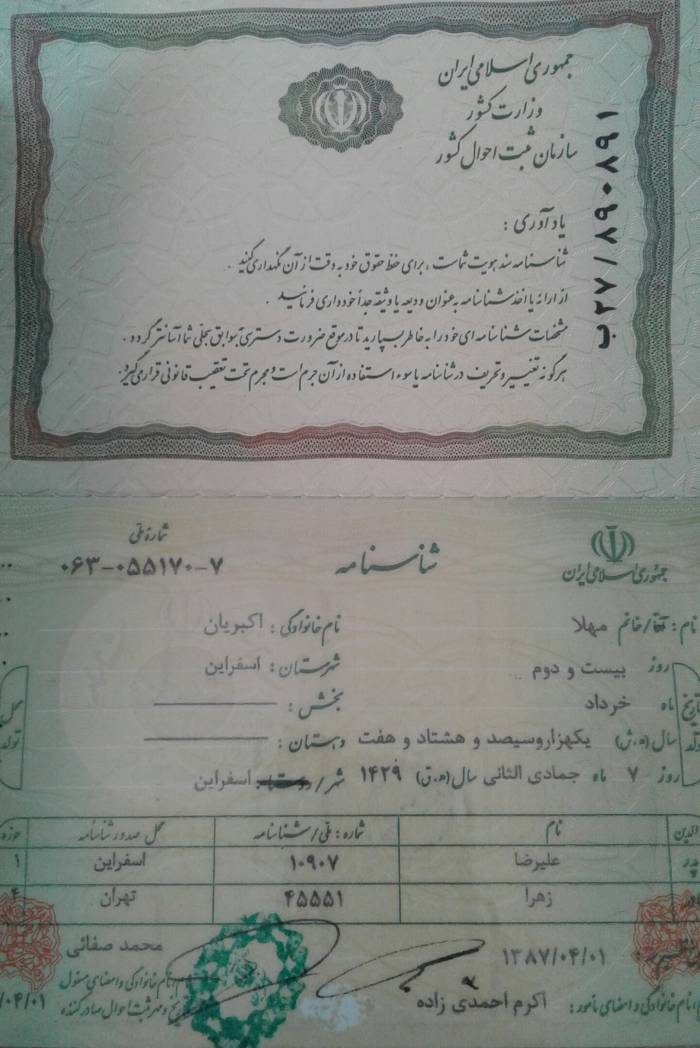 جمهوری اسلامی ایران
وزارت کشور
سازمان ثبت احوال کشور
ب۲۷/۸۹۰۸۹۱
یادآوری :
شناسنامه سند هویت شماست ، برای حفظ حقوق خود به دقت از آن نگهداری کنید .
از ارائه یا اخذ شناسنامه به عنوان ودیعه یا وثیقه جداً خودداری فرمائید .
مشخصات شناسنامه ای خود را به خاطر بسپارید تا در موقع ضرورت دسترسی بسوابق سجلی شما آسانتر گردد .
هرگونه تغییر و تحریف در شناسنامه یا سوء استفاده از آن جرم است و مجرم تحت تعقیب قانونی قرار می گیرد.
جمهوری اسلامی ایران
شناسنامه
شماره ملی
۰۶۳-۰۵۵۱۷۰-۷
نام: آقا/خانم مهلا نام خانوادگی : اکبریان
روز بیست و دوم شهرستان : اسفراین
تاریخ ماه خرداد بخش :
تولد سال(ه.ش) یکهزاروسیصد و هشتاد و هفت دهستان :
روز ۷ ماه جمادی الثانی سال(ه.ق) ۱۴۲۹ شهر/روستا: اسفراین
محل تولد
نام شماره : ملی/شناسنامه محل صدور شناسنامه حوزه
پدر علیرضا ۱۰۹۰۷ اسفراین ۱
مادر زهرا ۴۵۵۵۱ تهران ۴
۱۳۸۷/۰۴/۰۱ محمد صفائی
نام خانوادگی و امضای مأمور: اکرم احمدی زاده
نام خانوادگی و امضای مسئول
تاریخ و مهر ثبت احوال صادرکننده
/۰۴/۰۱